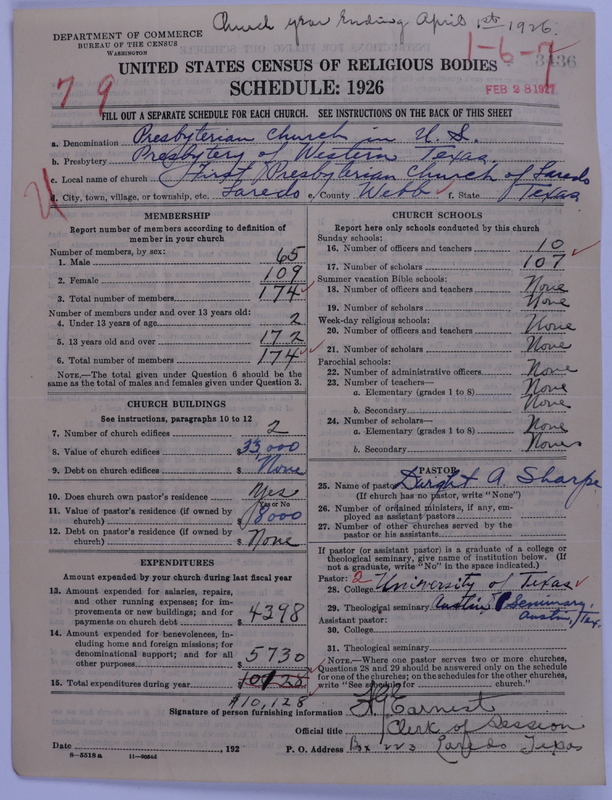 Church year Ending April 1st 1926.
DEPARTMENT OF COMMERCE
BUREAU OF THE CENSUS
WASHINGTON
1-6-7
3436
UNITED STATES CENSUS OF RELIGIOUS BODIES
SCHEDULE: 1926
FEB 28 1927
79
FILL OUT A SEPARATE SCHEDULE FOR EACH CHURCH. SEE INSTRUCTIONS ON THE BACK OF THIS SHEET
a. Denomination Presbyterian Church in U. S.
b. Presbytery Presbytery of Western Texas.
c. Local name of church First Presbyterian Church of Laredo
d. City, town, village, or township, etc. Laredo e. County Webb f. State Texas
MEMBERSHIP
Report number of members according to definition of
member in your church
Number of members, by sex:
1. Male 65
2. Female 109
3. Total number of members 174
Number of members under and over 13 years old:
4. Under 13 years of age 2
5. 13 years old and over 172
6. Total number of members 174
NOTE.—The total given under Question 6 should be
the same as the total of males and females given under Question 3.
CHURCH BUILDINGS
See instructions, paragraphs 10 to 12
7. Number of church edifices 2
8. Value of church edifices $33,000
9. Debt on church edifices $ None
10. Does church own pastor's residence Yes
Yes or No
11. Value of pastor's residence (if owned by
church) $ 8000
12. Debt on pastor's residence (if owned by
church) $ None
EXPENDITURES
Amount expended by your church during last fiscal year
13. Amount expended for salaries, repairs,
and other running expenses; for im-
provements or new buildings; and for
payments on church debt $ 4398
14. Amount expended for benevolences, in-
cluding home and foreign missions; for
denominational support; and for all
other purposes $ 5730
15. Total expenditures during year $ 10128
$10,128
CHURCH SCHOOLS
Report here only schools conducted by this church
Sunday schools:
16. Number of officers and teachers 10
17. Number of scholars 107
Summer vacation Bible schools:
18. Number of officers and teachers None
19. Number of scholars None
Week-day religious schools:
20. Number of officers and teachers None
21. Number of scholars None
Parochial schools:
22. Number of administrative officers None
23. Number of teachers—
a. Elementary (grades 1 to 8) None
b. Secondary None
24. Number of scholars—
a. Elementary (grades 1 to 8) None
b. Secondary None
PASTOR
25. Name of pastor Dwight A. Sharpe
(If church has no pastor, write "None")
26. Number of ordained ministers, if any, em-
ployed as assistant pastors
27. Number of other churches served by the
pastor or his assistants
If pastor (or assistant pastor) is a graduate of a college or
theological seminary, give name of institution below. (If
not a graduate, write "No" in the space indicated.)
Pastor: 2
28. College University of Texas
29. Theological seminary Austin P Seminary.
Austin, Tex.
Assistant pastor:
30. College
31. Theological seminary
NOTE.—Where one pastor serves two or more churches,
Questions 28 and 29 should be answered only on the schedule
for one of the churches; on the schedules for the other churches,
write "See schedule for church."
Signature of person furnishing information Earnest
Official title Clerk of Session
Date , 192 P. O. Address Bx 223 Laredo Texas
8—5518 a